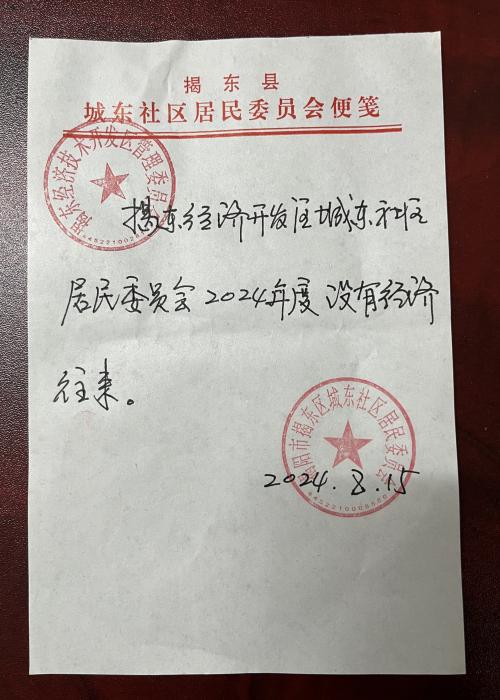 揭东县
城东社区居民委员会便笺
揭东经济技术开发区管理委员会
揭东经济开发区城东社区
居民委员会2024年度没有经济
往来。
揭阳市揭东区城东社区居民委员会
2024.8.15